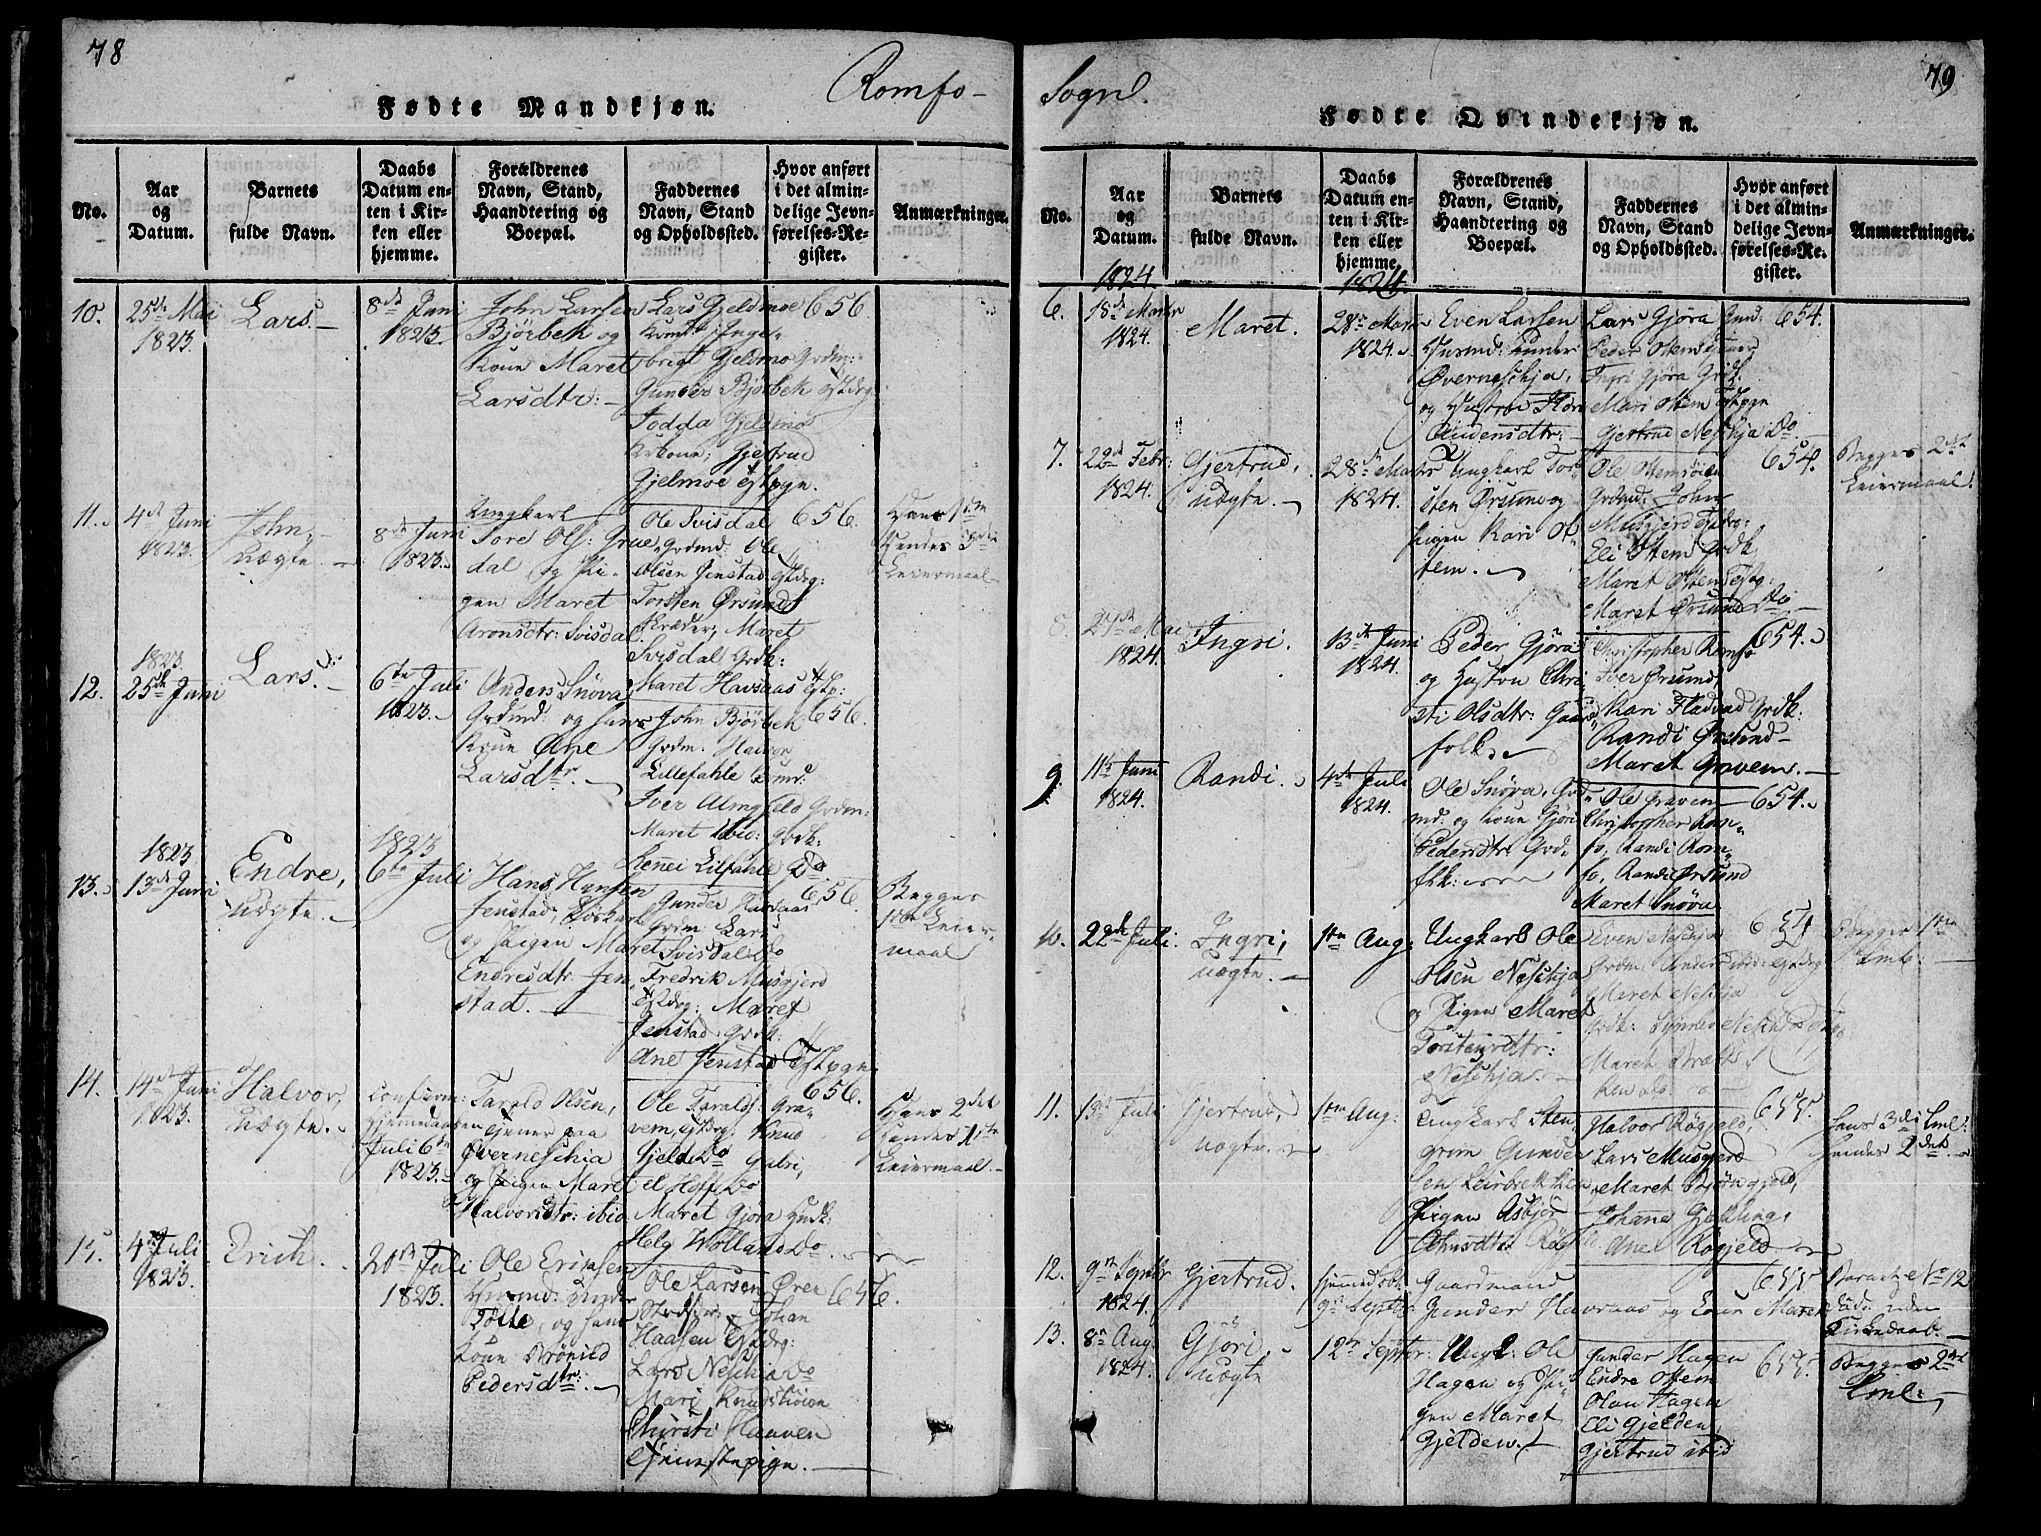 78
Romfo-
Fødte Mandkjøn.
No.
Aar
og
Datum.
Barnets
fulde Navn.
Daabs
Datum en-
ten i Kir-
ken eller
hjemme.
Forældrenes
Navn, Stand,
Haandtering og
Boepæl.
Faddernes
Navn, Stand
og Opholdssted.
Hvor anført
i det almin-
delige Jevn-
førelses-Re-
gister.
Anmærkninger.
10.
25de Mai
1823.
Lars.
8de Juni
1823.
John Larsen
Bjørbek og
Kone Maret
Larsdtr:
Lars Gjeldmoe
brigt Gjeldmo Grdm:
Gunder Bjørbek
Todda Gjeldmo
Gjertrud
Gjelmoe
656.
11.
4de Juni
1823.
John,
uægte.
8de Juni
1823.
Ungkarl
Tore Ols: Grue
dal og Pi-
gen Maret
Aronsdtr: Svisdal.
Ole Svisdal
Grdmd: Ole
Olsen Jenstad
Torsten Ørsund
Maret
Svisdal Grdk:
Maret Havsaas
656.
Hans 1ste
Hendes 3die
Leiermaal
12.
1823
25de Juni
Lars.
6te Juli
1823.
Anders Snøva
Grdmd: og hans
Kone Ane
Larsdtr.
John Bjørbek
Grdm. Halvor
Lillefahle
Iver Almskeld Grdm:
Maret ibid: Grdk:
656.
13.
1823
13de Juni
Endre,
uægte.
1823
6te Juli
Hans Hansen
Jenstad,
og Pigen Maret
Endresdtr Jen
stad.
Gunder Havsaas
Grdm Lars
Svisdal Do
Fredrik Musgjerd
Maret
Jenstad Grdk.
Ane Jenstad
656.
Begges
1ste Leier
maal
14.
14de Juni
1823.
Halvor,
uægte.
Confirm:
Hjemmedaaben
Juli 6te
1823.
Tarald Olsen,
tjener paa
Øverneschia
og Pigen Maret
Halvorsdtr: ibid
Ole Taralds: Gra-
vem, Knud
Gjeld Do Gabri,
el Hoff Do
Maret Gjora
Helg Wolland Do
656.
Hans 2det
Hendes 1ste
Leiermaal.
15.
4de Juli
1823.
Erich.
20de Juli
1823.
Ole Erichsen
Husmd: under
og hans
Kone Brønild
Pedersdtr.
Ole Larsen Øren
Johan
Haasen
Lars Neschia Do
Mari
Christi Haaven
656.
79
Sogn.
Fødte Qvindekjøn.
No.
Aar
og
Datum.
Barnets
fulde Navn.
Daabs
Datum en-
ten i Kir-
ken eller
hjemme.
Forældrenes
Navn, Stand,
Haandtering og
Boepæl.
Faddernes
Navn, Stand
og Opholdssted.
Hvor anført
i det almin-
delige Jevn-
førelses-Re-
gister.
Anmærkninger.
1824.
1824.
6.
18de Marts
1824.
Maret.
28de Marts
1824.
Even Larsen
Husmd: under
Øverneschja,
og Hustroe
Audensdtr:
Lars Gjøra
Peder Ottem
Ingri Gjøra
Mari Ottem
Gjertrud Neschja Do
654.
7.
22de Febr:
1824.
Gjertrud,
uægte.
28de Marts
1824.
Ungkarl Tor-
sten Ørsund og
Pigen Kari Ot
tem.
Ole Ottemsøien
Grdmd: John
Musgjerd
Eli Ottem Grdk
Maret Ottem
Maret Ørsund Do
654.
Begges 2det
Leiermaal.
8
27de Mai
1824.
Ingri.
13de Juni
1824.
Peder Gjøra
og Hustru Chri
sti Olsdtr: Gaard
folk.
Christopher Romfo
Iver Ørsund
Kari Fladvad Grdk:
Randi Ørsund
Maret Gravem.
654.
9.
11te Juni
1824.
Randi.
4de Juli
1824.
Ole Snøva, Grd
md: og Kone Gjøri
Pedersdtr Grd:
flk:
Ole Graven
Christopher Rom-
fo, Randi Rom-
fo, Randi Ørsund
Maret Snøva
654.
10.
22de Juli.
Ingri,
uægte.
1ste Aug:
Ungkarl Ole
Olsen Neschja
og Pigen Maret
Torstensdtr:
Neschja.
Even Neschja
Grdm: Anders ibid:
Maret Neschja
Grdk:
Maret
654
Begges 1ste
Lml:
11.
13de Juli
Gjertrud,
uægte.
1ste Aug:
Ungkarl Sten
grim Gunder
sen
Pigen Asbjør
Halvor Røgjeld,
Lars Musgjerd
Maret Bjørngjeld,
Johanna
Ane Røgjeld
655.
Hans 3die Lml:
Hendes 2det.
12.
9de Septbr
1824.
Gjertrud.
hjemmedøbt
9de Septbr
Gaardmand
Gunder Havsaas og Kone Maret
655
Barnet No 12
døde uden
Kirkedaab.
13.
8de Aug.
1824.
Gjøri,
uægte
12te Septbr:
Ungk: Ole
Hagen og Pi-
gen Maret
Gjelden.
Gunder Hagen
Endre Ottem
Olau Hagen
Eli Gjelden
Gjertrud ibid
655.
Begges 2det
Lml: